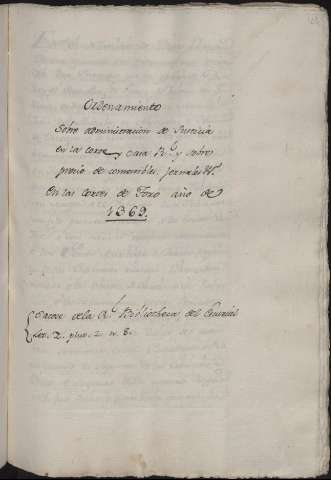 Ordenamiento
Sobre administracion de Justicia
en la corte y casa Rl. y sobre
precio de comestibles, jornales &c.
En las cortes de Toro año de
1369.
Sacose de la Rl. Bibliotheca del Escurial
Let. Z. plut. 2. n. 8.